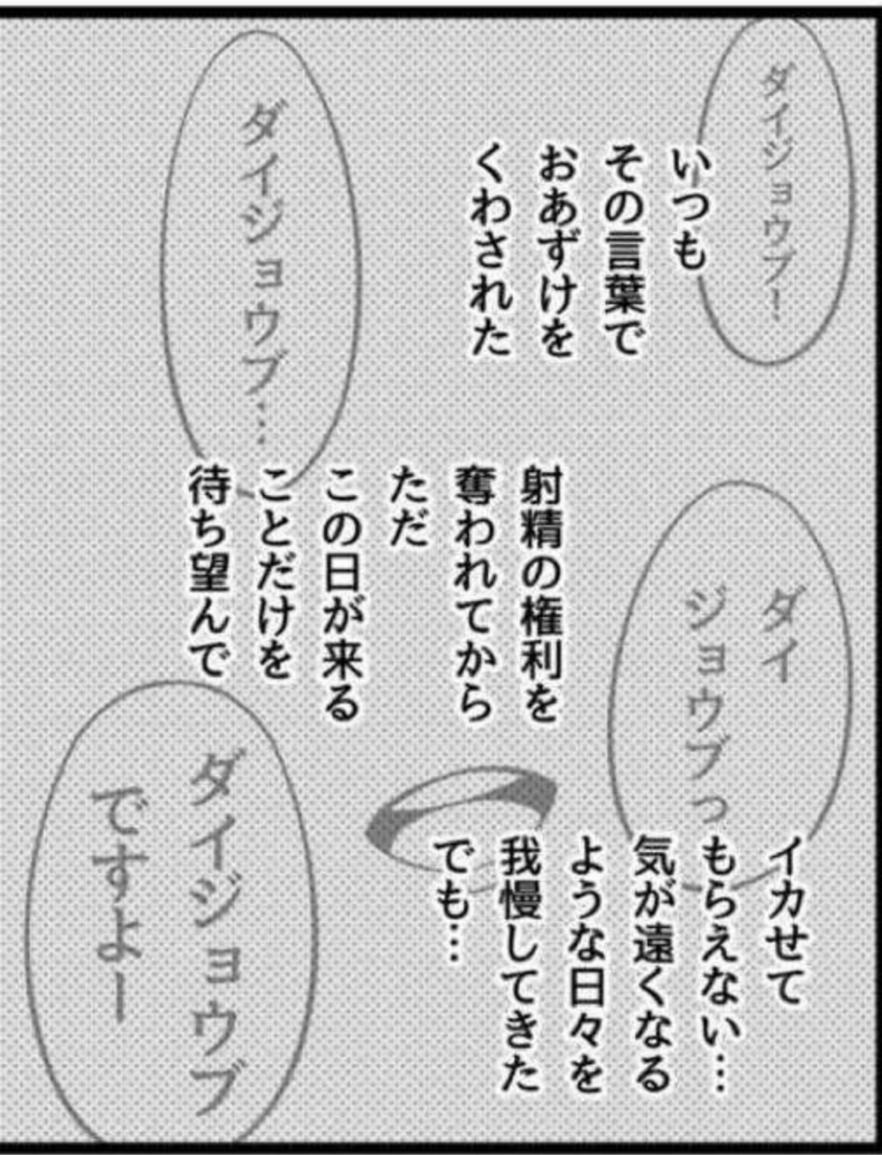 ダイジョウブ！
いつも
その言葉で
おあずけを
くわされた
ダイジョウブ…
射精の権利を
奪われてから
ただ
この日が来る
ことだけを
待ち望んで
ダイ
ジョウブっ
イカせて
もらえない…
気が遠くなる
ような日々を
我慢してきた
でも…
ダイジョウブ
ですよー